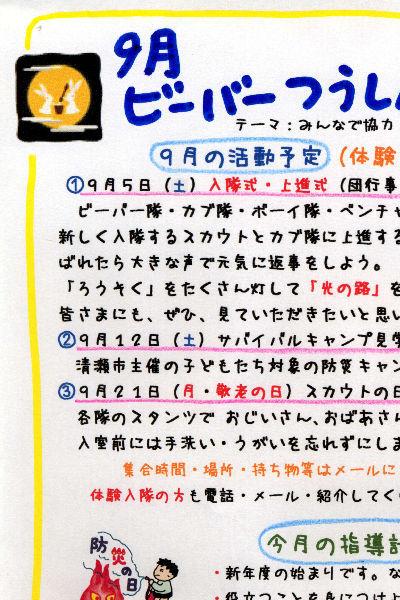 9月
ビーバーつうしん
テーマ：みんなで協力
9月の活動予定（体験
①9月5日（土）入隊式・上進式（団行事
ビーバー隊・カブ隊・ボーイ隊・ベンチャ
新しく入隊するスカウトとカブ隊に上進する
ばれたら大きな声で元気に返事をしよう。
「ろうそく」をたくさん灯して「光の路」を
皆さまにも、ぜひ、見ていただきたいと思い
②9月12日（土）サバイバルキャンプ見学
清瀬市主催の子どもたち対象の防災キャン
③9月21日（月・敬老の日）スカウトの日
各隊のスタンツで おじいさん、おばあさん
入室前には手洗い・うがいを忘れずにしま
集合時間・場所・持ち物等はメールに
体験入隊の方も電話・メール・紹介してく
今月の指導計
防災の日
・新年度の始まりです。な
・役立つことを身につけ